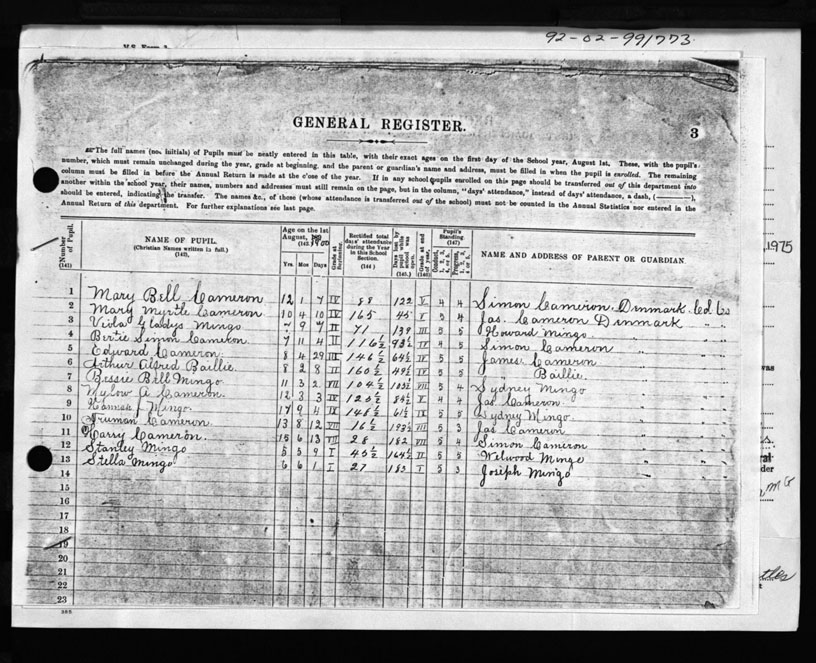 92-02-991773
GENERAL REGISTER.
3
The full names (no initials) of Pupils must be neatly entered in this table, with their exact ages on the first day of the School year, August 1st. These, with the pupil's
number, which must remain unchanged during the year, grade at beginning, and the parent or guardian's name and address, must be filled in when the pupil is enrolled. The remaining
column must be filled in before the Annual Return is made at the c'ose of the year. If in any school pupils enrolled on this page should be transferred out of this department into
another within the school year, their names, numbers and addresses must still remain on the page, but in the column, "days' attendance," instead of days' attendance, a dash, (———),
should be entered, indicating the transfer. The names &c., of those (whose attendance is transferred out of the school) must not be counted in the Annual Statistics nor entered in the
Annual Return of this department. For further explanations see last page.
Number of Pupil. (141) NAME OF PUPIL. (Christian Names written in full.) (142). Age on the 1st August, 1900 (143.) Yrs. Mos Days Grade at Beginning. Rectified total days' attendance during the Year in this School Section. (144) Days lost by pupil while school was open. (145.) Grade at end of year. (146) Pupil's Standing. (147) Conduct, 1, 2, 3, 4, or 5. Progress, 1, 2, 3, 4, or 5. NAME AND ADDRESS OF PARENT OR GUARDIAN.
1 Mary Bell Cameron 12 1 7 IV 88 122 V 4 4 Simon Cameron Denmark Col. Co
2 Mary Myrtle Cameron 10 4 10 IV 165 45 V 3 4 Jas. Cameron Denmark " "
3 Viola Gladys Mingo 7 9 7 II 71 139 III 5 5 Howard Mingo " "
4 Bertie Simon Cameron 7 11 4 II 116½ 93½ IV 4 5 Simon Cameron " "
5 Edward Cameron 8 4 29 III 146½ 64½ IV 5 5 James Cameron " "
6 Arthur Alfred Baillie 8 2 8 II 160½ 49½ IV 5 5 Baillie " "
7 Bessie Bell Mingo 11 3 2 VII 104½ 105½ VII 5 4 Sydney Mingo " "
8 A Cameron 12 3 3 IV 125½ 84½ V 4 4 Jas Cameron " "
9 Mingo 17 9 4 IX 148½ 61½ IX 5 5 Sydney Mingo " "
10 Truman Cameron 13 8 12 VII 16½ 193½ VII 5 3 Jas Cameron " "
11 Harry Cameron 15 6 13 VII 28 182 VII 5 4 Simon Cameron " "
12 Stanley Mingo 5 3 9 I 45½ 164½ II 5 5 Welwood Mingo " "
13 Stella Mingo 6 6 1 I 27 183 I 5 3 Joseph Mingo " "
14
15
16
17
18
19
20
21
22
23
, 1975
was
der